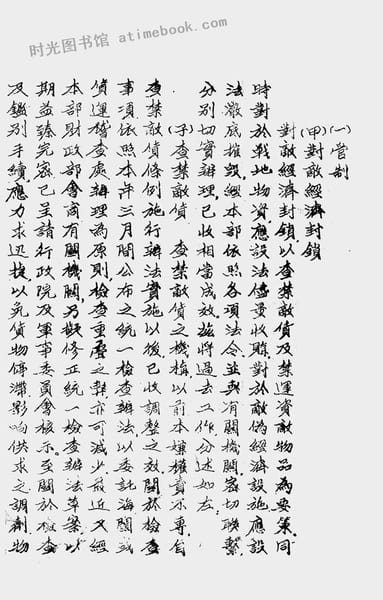 时光图书馆 atimebook.com
(一)管制
(甲)對敵經濟封鎖
對敵經濟封鎖,以查禁敵貨及禁運資敵物品為要策。同
時對於戰地物資,應設法儘量收購,對於敵偽經濟設施,應設
法澈底摧毀。經本部依照各項法令,並與有關機關密切聯繫,
分別切實辦理,已收相當成效。茲將過去工作,分述如左:
(子)查禁敵貨 查禁敵貨之機構,以前本嫌權責不專,自
查禁敵貨條例施行辦法實施以後,已收調整之效。關於檢查
事項,依照本年三月間公布之統一檢查辦法,以委託海關或
貨運稽查處辦理為原則,檢查重疊之弊,亦可減少。最近又經
本部財政部會商有關機關,乃擬修正統一檢查辦法草案,以
期益臻完密,已呈請行政院及軍事委員會核示。至關於檢查
及鑑別手續,應力求迅捷,以免貨物停滯,影响供求之調劑,物